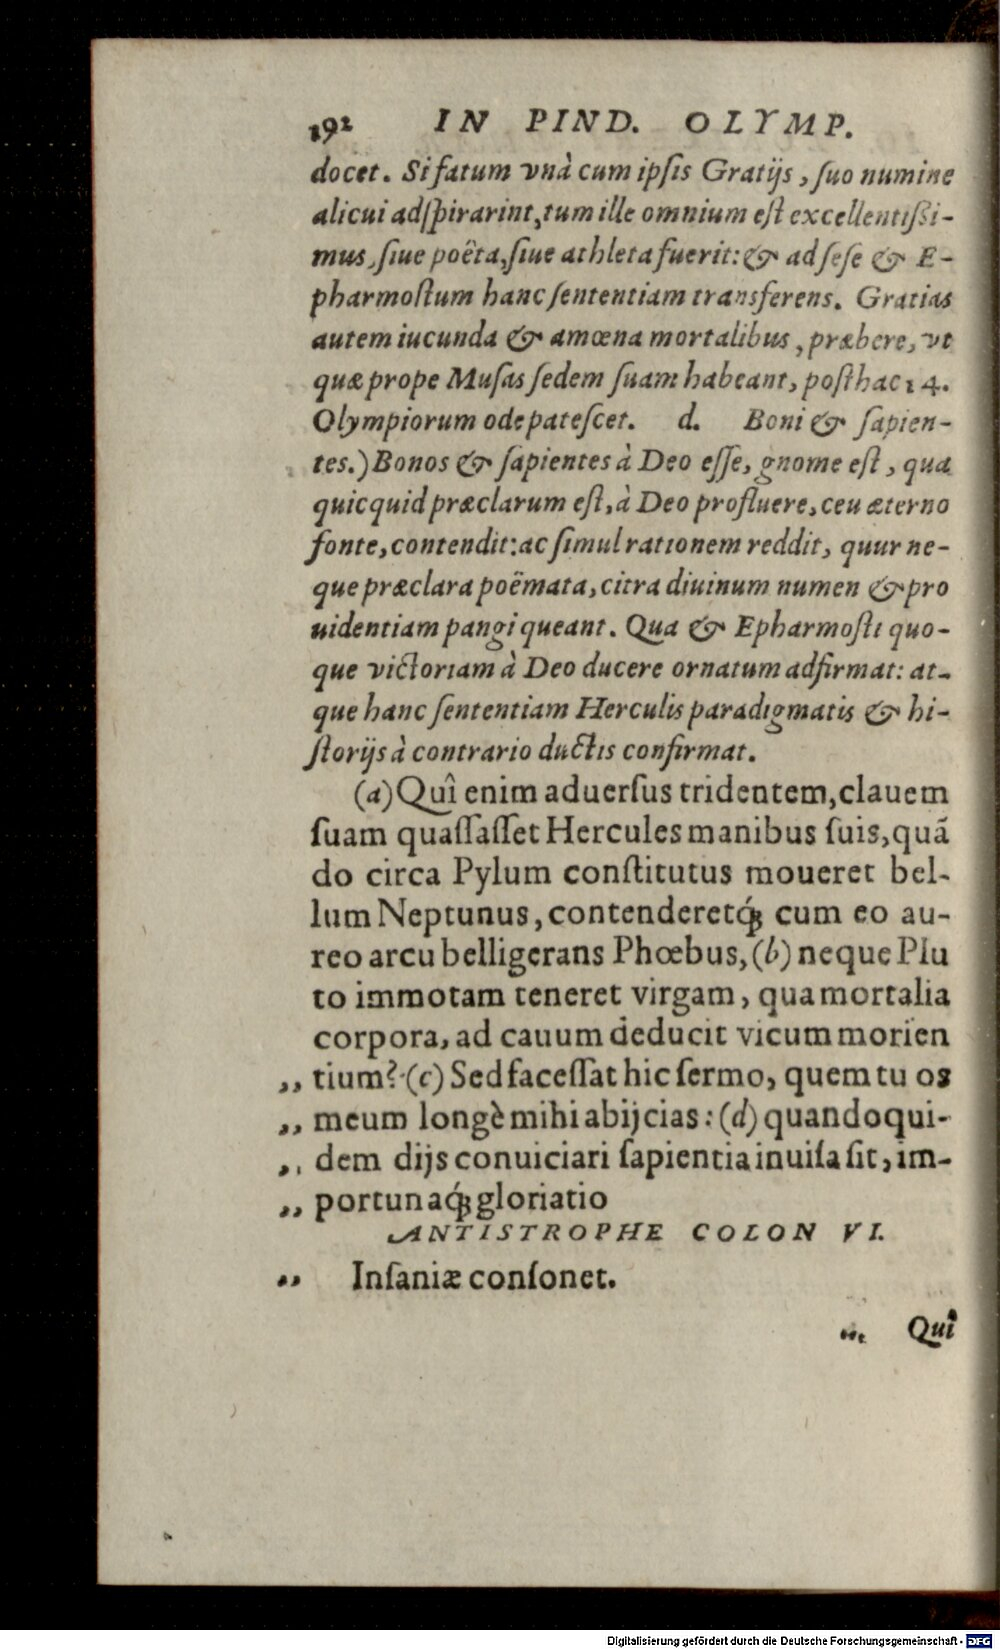 192 IN PIND. OLYMP.
docet. Si fatum vnà cum ipſis Gratijs, ſuo numine
alicui adſpirarint, tum ille omnium eſt excellentiſsi-
mus, ſiue poëta, ſiue athleta fuerit: & ad ſeſe & E-
pharmoſtum hanc ſententiam transferens. Gratias
autem iucunda & amœna mortalibus, præbere, vt
quæ prope Muſas ſedem ſuam habeant, poſthac 14.
Olympiorum ode pateſcet. d. Boni & ſapien-
tes.) Bonos & ſapientes à Deo eſſe, gnome eſt, qua
quicquid præclarum eſt, à Deo profluere, ceu æterno
fonte, contendit: ac ſimul rationem reddit, quur ne-
que præclara poëmata, citra diuinum numen & pro
uidentiam pangi queant. Qua & Epharmoſti quo-
que victoriam à Deo ducere ornatum adfirmat: at-
que hanc ſententiam Herculis paradigmatis & hi-
ſtorijs à contrario ductis confirmat.
(a) Quî enim aduerſus tridentem, clauem
ſuam quaſſaſſet Hercules manibus ſuis, quā
do circa Pylum conſtitutus moueret bel-
lum Neptunus, contenderetq́; cum eo au-
reo arcu belligerans Phœbus, (b) neque Plu
to immotam teneret virgam, qua mortalia
corpora, ad cauum deducit vicum morien
,, tium? (c) Sed faceſſat hic ſermo, quem tu os
,, meum longè mihi abijcias: (d) quandoqui-
,, dem dijs conuiciari ſapientia inuiſa ſit, im-
,, portunaq́; gloriatio
ANTISTROPHE COLON VI.
,, Inſaniæ conſonet.
Quî
Digitalisierung gefördert durch die Deutsche Forschungsgemeinschaft - DFG